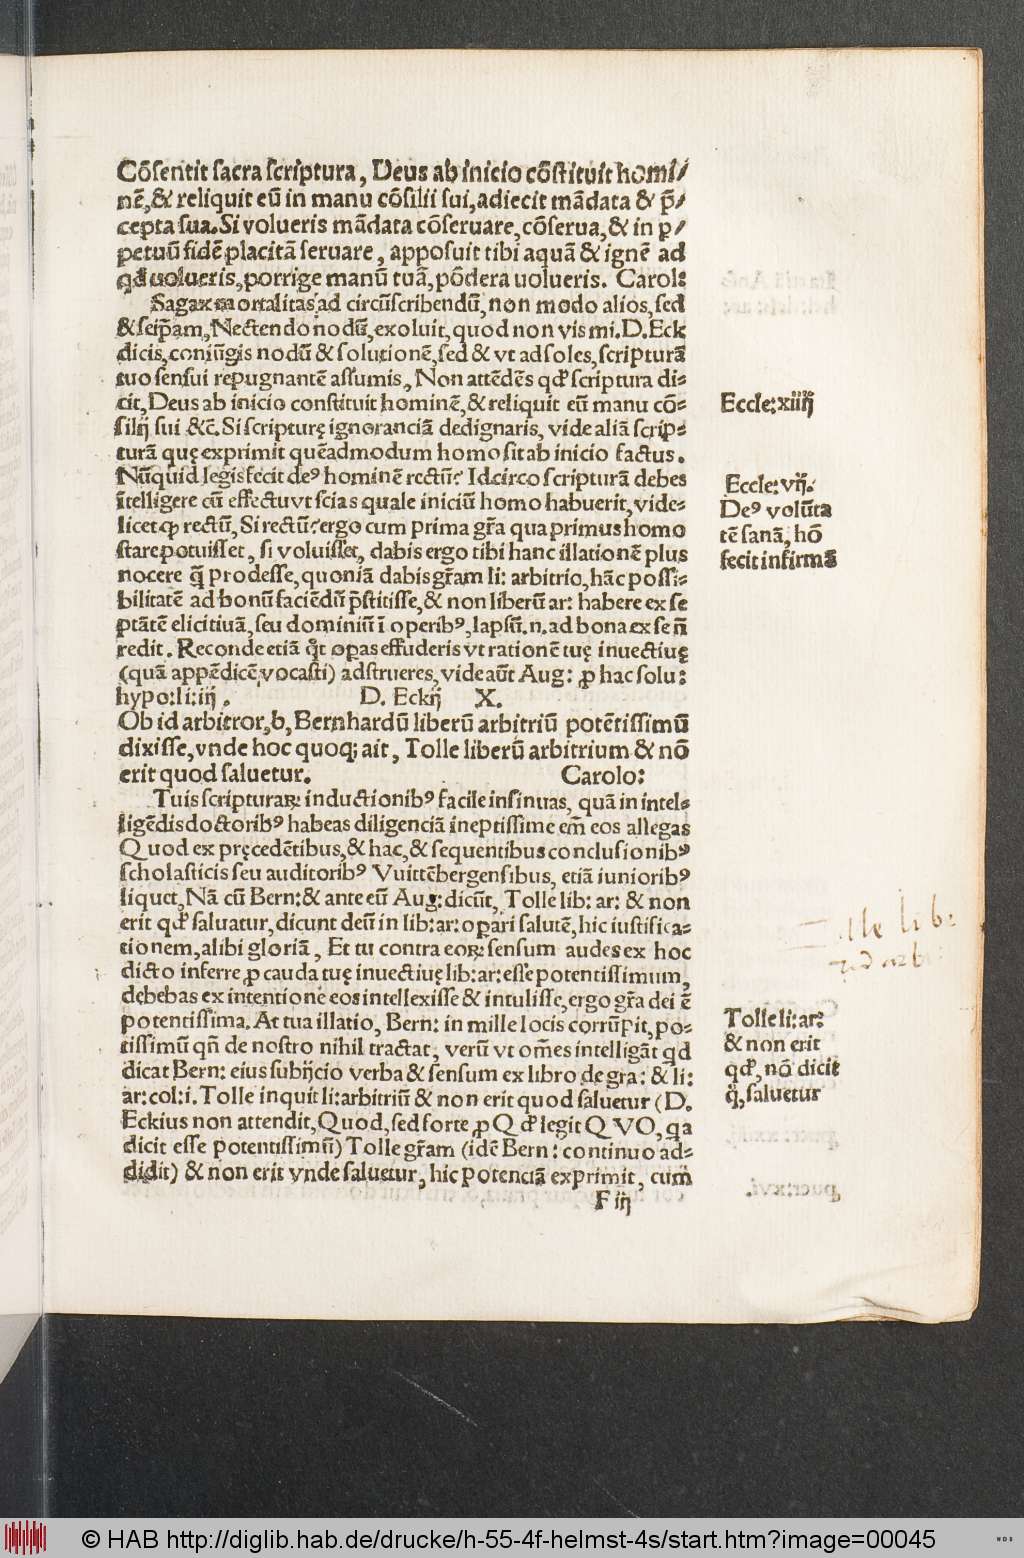 Cōsentit sacra scriptura, Deus ab inicio cōstituit homi/
nē, & reliquit eū in manu cōsilii sui, adiecit mādata & p̄/
cepta sua. Si volueris mādata cōseruare, cōserua, & in ꝑ/
petuū fidē placitā seruare, apposuit tibi aquā & ignē ad
qđ uolueris, porrige manū tuā, pōdera uolueris. Carol:
Sagax mortalitas ad circūscribendū, non modo alios, sed
& seip̄am, Nectendo nodū, exoluit, quod non vis mi. D. Eck
dicis, coniūgis nodū & solutionē, sed & vt ad soles, scripturā
tuo sensui repugnantē assumis, Non attēdēs qđ scriptura di-
cit, Deus ab inicio constituit hominē, & reliquit eū manu cō-
silij sui &c̄. Si scripturę ignoranciā dedignaris, vide aliā scrip-
turā quę exprimit quēadmodum homo sit ab inicio factus.
Nūquid legis fecit deꝰ hominē rectū? Idcirco scripturā debes
ītelligere cū effectu vt scias quale iniciū homo habuerit, vide-
licet ꝙ rectū, Si rectū? ergo cum prima gr̄a qua primus homo
stare potuisset, si voluisset, dabis ergo tibi hanc illationē plus
nocere q̄ꝫ prodesse, quoniā dabis gr̄am li: arbitrio, hāc possi-
bilitatē ad bonū faciēdū p̄stitisse, & non liberū ar: habere ex se
ptātē elicitiuā, seu dominiū ī operibꝰ, lapsū. n. ad bona ex se ñ
redit. Reconde etiā qͦt oꝑas effuderis vt rationē tuę inuectiuę
(quā appēdicē vocasti) adstrueres, vide aūt Aug: ꝓ hac solu:
hypo: li: iij. D. Eckij X.
Ob id arbitror, b, Bernhardū liberū arbitriū potētissimū
dixisse, vnde hoc quoqꝫ ait, Tolle liberū arbitrium & nō
erit quod saluetur. Carolo:
Tuis scripturaꝝ inductionibꝰ facile insinuas, quā in intel-
ligēdis doctoribꝰ habeas diligenciā ineptissime em̄ eos allegas
Quod ex pręcedētibus, & hac, & sequentibus conclusionibꝰ
scholasticis seu auditoribꝰ Vuittēbergensibus, etiā iunioribꝰ
liquet, Nā cū Bern: & ante eū Aug: dicūt, Tolle lib: ar: & non
erit qđ saluatur, dicunt deū in lib: ar: oꝑari salutē, hic iustifica-
tionem, alibi gloriā, Et tu contra eoꝝ sensum audes ex hoc
dicto inferre, ꝓ cauda tuę inuectiuę lib: ar: esse potentissimum,
debebas ex intentione eos intellexisse & intulisse, ergo gr̄a dei ē
potentissima. At tua illatio, Bern: in mille locis corrūpit, po-
tissimū qñ de nostro nihil tractat, verū vt om̄es intelligāt qđ
dicat Bern: eius subijcio verba & sensum ex libro de gra: & li:
ar: col: i. Tolle inquit li: arbitriū & non erit quod saluetur (D.
Eckius non attendit, Quod, sed forte ꝓ Qđ legit QVO, qa
dicit esse potentissimū) Tolle gr̄am (idē Bern: continuo ad-
didit) & non erit vnde saluetur, hic potenciā exprimit, cum
F iij
Eccle: xiiij
Eccle: vij.
Deꝰ volūta
tē sanā, hō
fecit infirmā
Tolle lib:
Tolle li: ar:
& non erit
qđ, nō dicit
q̄, saluetur
© HAB http://diglib.hab.de/drucke/h-55-4f-helmst-4s/start.htm?image=00045